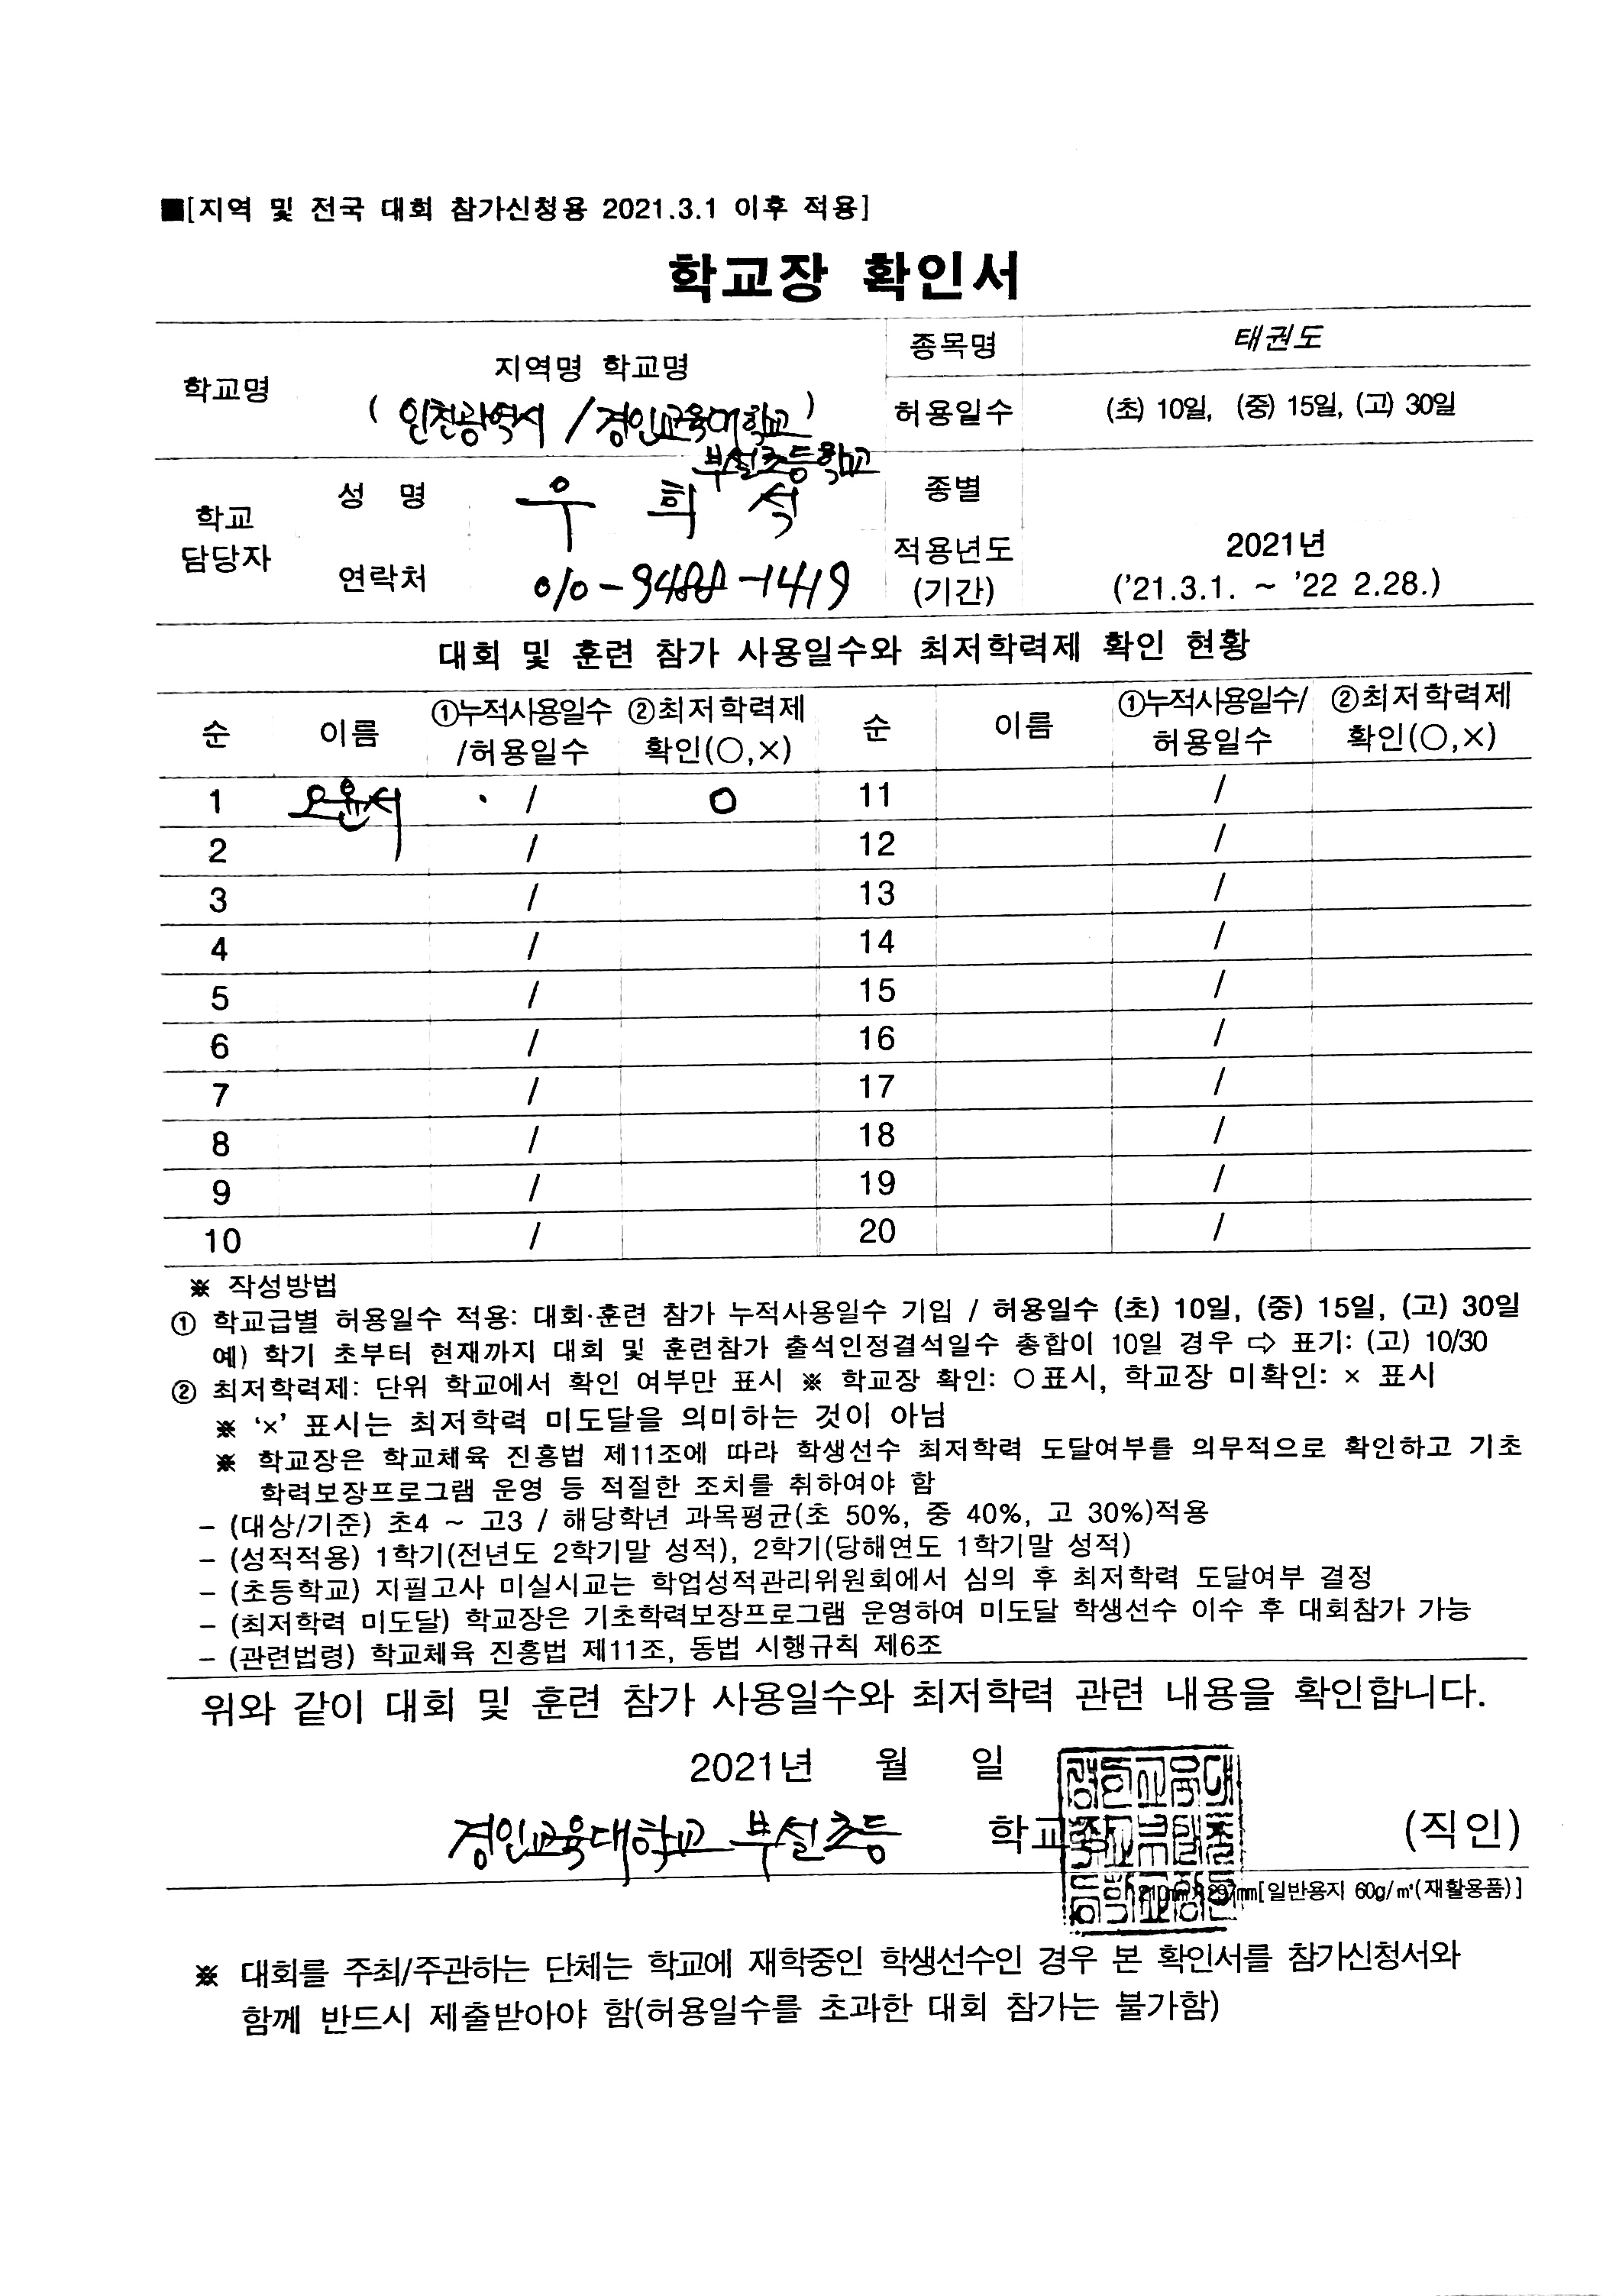 ■[지역 및 전국 대회 참가신청용 2021.3.1 이후 적용]
학교장 확인서
학교명
지역명 학교명
( 인천광역시 / 경인교육대학교 )
부설초등학교
종목명
태권도
허용일수
(초) 10일, (중) 15일, (고) 30일
학교
담당자
성 명
우 희 석
종별
연락처
010-9488-1419
적용년도
(기간)
2021년
('21.3.1. ~ '22 2.28.)
대회 및 훈련 참가 사용일수와 최저학력제 확인 현황
순 이름 ①누적사용일수 ②최저학력제 순 이름 ①누적사용일수/ ②최저학력제
/허용일수 확인(○,×) 허용일수 확인(○,×)
1 오윤서 / ○ 11 /
2 / 12 /
3 / 13 /
4 / 14 /
5 / 15 /
6 / 16 /
7 / 17 /
8 / 18 /
9 / 19 /
10 / 20 /
※ 작성방법
① 학교급별 허용일수 적용: 대회·훈련 참가 누적사용일수 기입 / 허용일수 (초) 10일, (중) 15일, (고) 30일
예) 학기 초부터 현재까지 대회 및 훈련참가 출석인정결석일수 총합이 10일 경우 ⇨ 표기: (고) 10/30
② 최저학력제: 단위 학교에서 확인 여부만 표시 ※ 학교장 확인: ○표시, 학교장 미확인: × 표시
※ '×' 표시는 최저학력 미도달을 의미하는 것이 아님
※ 학교장은 학교체육 진흥법 제11조에 따라 학생선수 최저학력 도달여부를 의무적으로 확인하고 기초
학력보장프로그램 운영 등 적절한 조치를 취하여야 함
- (대상/기준) 초4 ~ 고3 / 해당학년 과목평균(초 50%, 중 40%, 고 30%)적용
- (성적적용) 1학기(전년도 2학기말 성적), 2학기(당해연도 1학기말 성적)
- (초등학교) 지필고사 미실시교는 학업성적관리위원회에서 심의 후 최저학력 도달여부 결정
- (최저학력 미도달) 학교장은 기초학력보장프로그램 운영하여 미도달 학생선수 이수 후 대회참가 가능
- (관련법령) 학교체육 진흥법 제11조, 동법 시행규칙 제6조
위와 같이 대회 및 훈련 참가 사용일수와 최저학력 관련 내용을 확인합니다.
2021년 월 일
경인교육대학교 부설초등 학교장 (직인)
210mm×297mm[일반용지 60g/㎡(재활용품)]
※ 대회를 주최/주관하는 단체는 학교에 재학중인 학생선수인 경우 본 확인서를 참가신청서와
함께 반드시 제출받아야 함(허용일수를 초과한 대회 참가는 불가함)